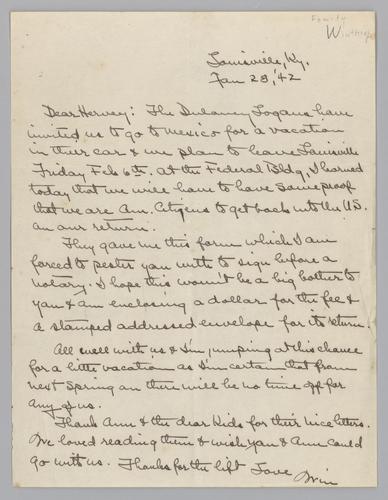 Family
Winthrop
Louisville, Ky.
Jan 28, '42
Dear Hervey: The Dulaney Logans have
invited us to go to Mexico for a vacation
in their car & we plan to leave Louisville
Friday Feb 6th. At the Federal Bldg. I learned
today that we will have to have some proof
that we are Am. Citizens to get back into the U.S.
on our return.
They gave me this form which I am
forced to pester you with to sign before a
notary. I hope this won't be a big bother to
you & am enclosing a dollar for the fee &
a stamped addressed envelope for its return.
All well with us & I'm jumping at this chance
for a little vacation as I'm certain that from
next Spring on there will be no time off for
any of us.
Thank Ann & the dear Kids for their nice letters.
I've loved reading them & wish you & Ann could
go with us. Thanks for the lift Love
Win